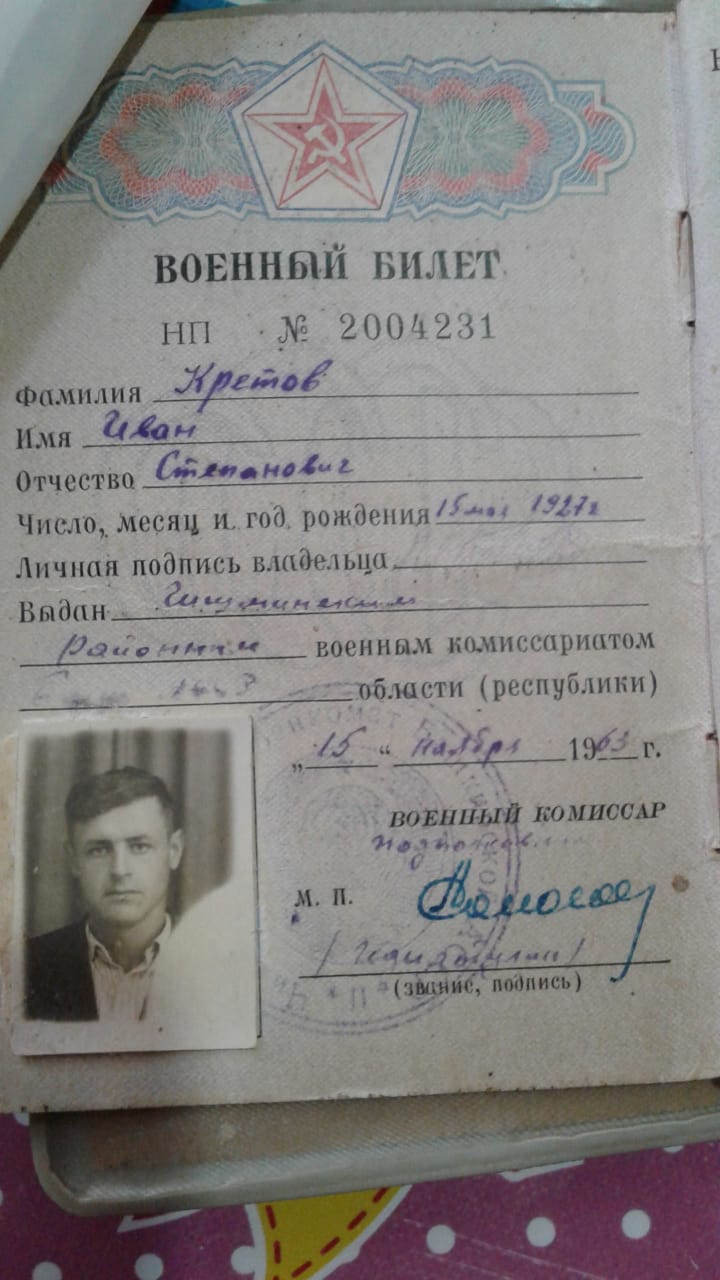 ВОЕННЫЙ БИЛЕТ
НП № 2004231
Фамилия Кретов
Имя Иван
Отчество Степанович
Число, месяц и год рождения 15 мая 1927 г
Личная подпись владельца
Выдан
районным военным комиссариатом
области (республики)
„15“ ноября 1963 г.
ВОЕННЫЙ КОМИССАР
М. П.
(звание, подпись)